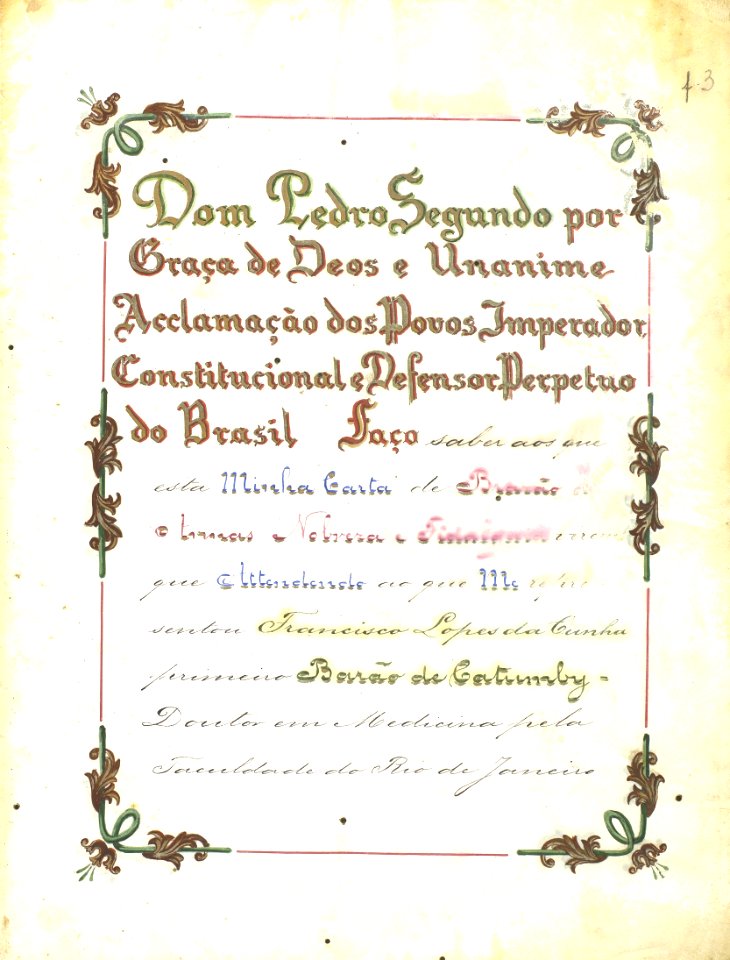 f. 3
Dom Pedro Segundo por
Graça de Deos e Unanime
Acclamação dos Povos Imperador
Constitucional e Defensor Perpetuo
do Brasil Faço saber aos que
esta Minha Carta de Brazão
e Nobreza e Fidalguia virem
que Attendendo ao que Me repre
sentou Francisco Lopes da Cunha
primeiro Barão de Catumby -
Doutor em Medicina pela
Faculdade do Rio de Janeiro